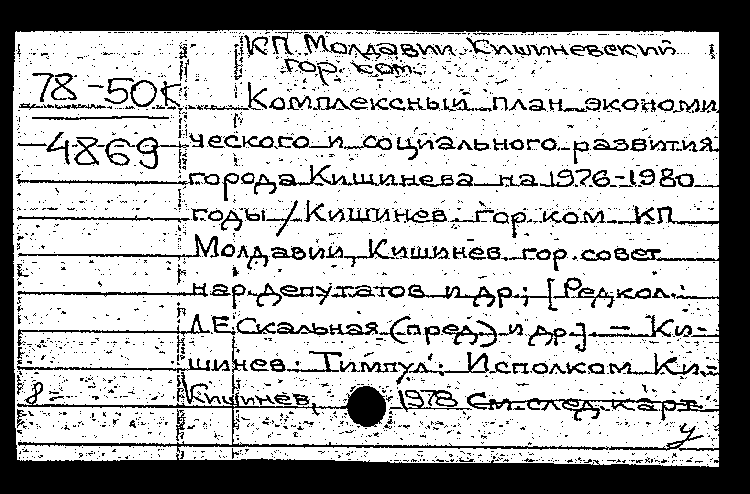 КП Молдавии. Кишиневский
гор. ком.
78-50к
4869
Комплексный план экономи
ческого и социального развития
города Кишинева на 1976-1980
годы / Кишинев. гор. ком. КП
Молдавии, Кишинев. гор. совет
нар. депутатов и др.; [Редкол.:
Л.Е. Скальная (пред.) и др.]. — Ки-
шинев: Тимпул: Исполком Ки-
8= Кишинев, 1978 См. след. карт
у